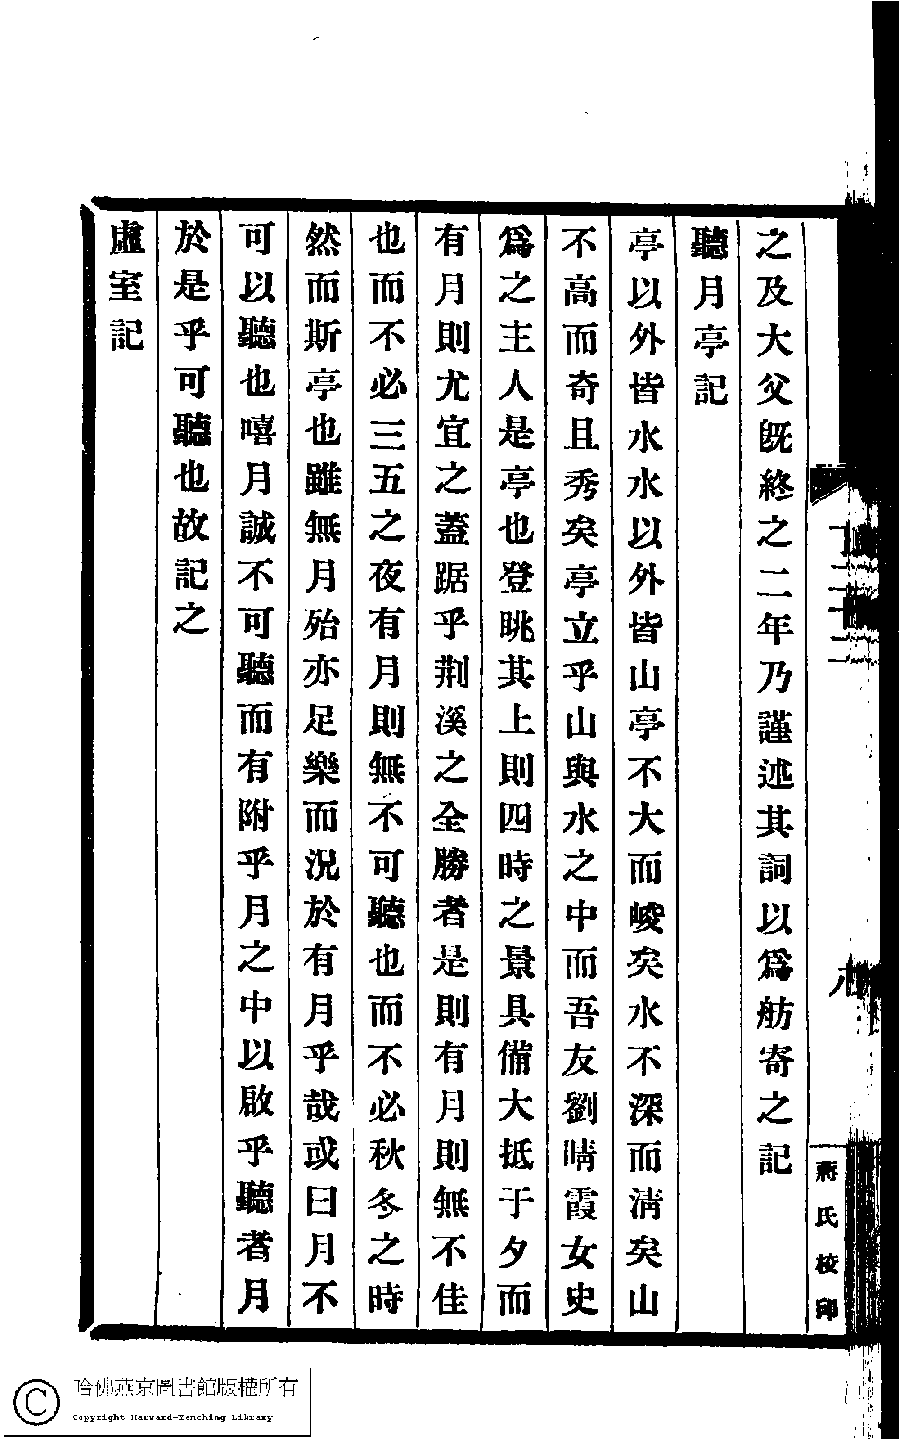 之及大父旣終之二年乃謹述其詞以爲舫寄之記
聽月亭記
亭以外皆水水以外皆山亭不大而峻矣水不深而淸矣山
不高而奇且秀矣亭立乎山與水之中而吾友劉晴霞女史
爲之主人是亭也登眺其上則四時之景具備大抵于夕而
有月則尤宜之蓋踞乎荆溪之全勝者是則有月則無不佳
也而不必三五之夜有月則無不可聽也而不必秋冬之時
然而斯亭也雖無月殆亦足樂而況於有月乎哉或曰月不
可以聽也嘻月誠不可聽而有附乎月之中以啟乎聽者月
於是乎可聽也故記之
虛室記
蔣氏校印
哈佛燕京圖書館版權所有
Copyright Harvard-Yenching Library